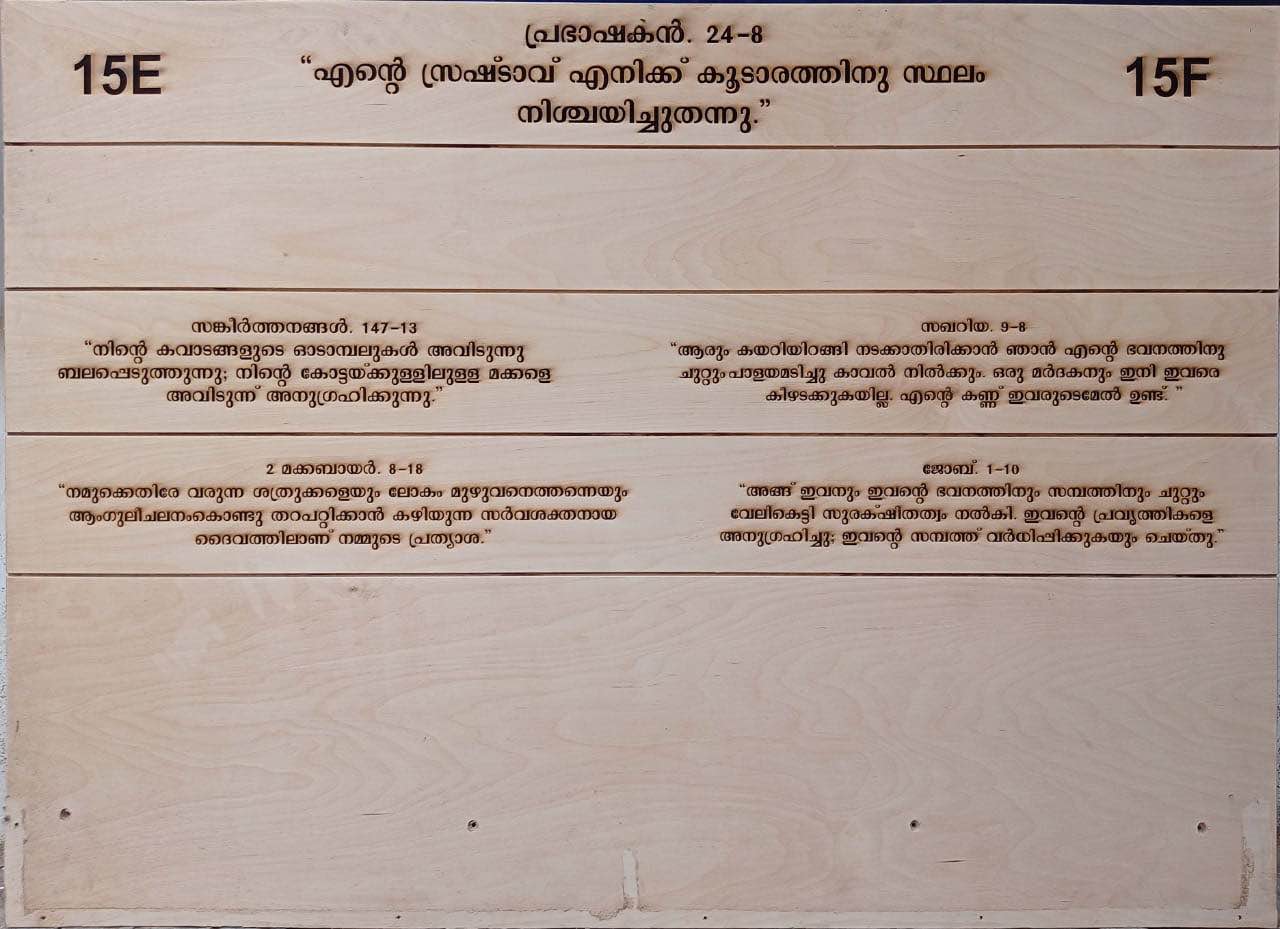 പ്രഭാഷകൻ. 24-8
15E
“എന്റെ സ്രഷ്ടാവ് എനിക്ക് കൂടാരത്തിനു സ്ഥലം
നിശ്ചയിച്ചുതന്നു.”
15F
സങ്കീർത്തനങ്ങൾ. 147-13
“നിന്റെ കവാടങ്ങളുടെ ഓടാമ്പലുകൾ അവിടുന്നു
ബലപ്പെടുത്തുന്നു; നിന്റെ കോട്ടയ്ക്കുള്ളിലുള്ള മക്കളെ
അവിടുന്ന് അനുഗ്രഹിക്കുന്നു.”
സഖറിയ. 9-8
“ആരും കയറിയിറങ്ങി നടക്കാതിരിക്കാൻ ഞാൻ എന്റെ ഭവനത്തിനു
ചുറ്റും പാളയമടിച്ചു കാവൽ നിൽക്കും. ഒരു മർദകനും ഇനി ഇവരെ
കീഴടക്കുകയില്ല. എന്റെ കണ്ണ് ഇവരുടെമേൽ ഉണ്ട്. ”
2 മക്കബായർ. 8-18
“നമുക്കെതിരേ വരുന്ന ശത്രുക്കളെയും ലോകം മുഴുവനെത്തന്നെയും
ആംഗുലീചലനംകൊണ്ടു തറപറ്റിക്കാൻ കഴിയുന്ന സർവശക്തനായ
ദൈവത്തിലാണ് നമ്മുടെ പ്രത്യാശ.”
ജോബ്. 1-10
“അങ്ങ് ഇവനും ഇവന്റെ ഭവനത്തിനും സമ്പത്തിനും ചുറ്റും
വേലികെട്ടി സുരക്ഷിതത്വം നൽകി. ഇവന്റെ പ്രവൃത്തികളെ
അനുഗ്രഹിച്ചു; ഇവന്റെ സമ്പത്ത് വർധിപ്പിക്കുകയും ചെയ്തു.”